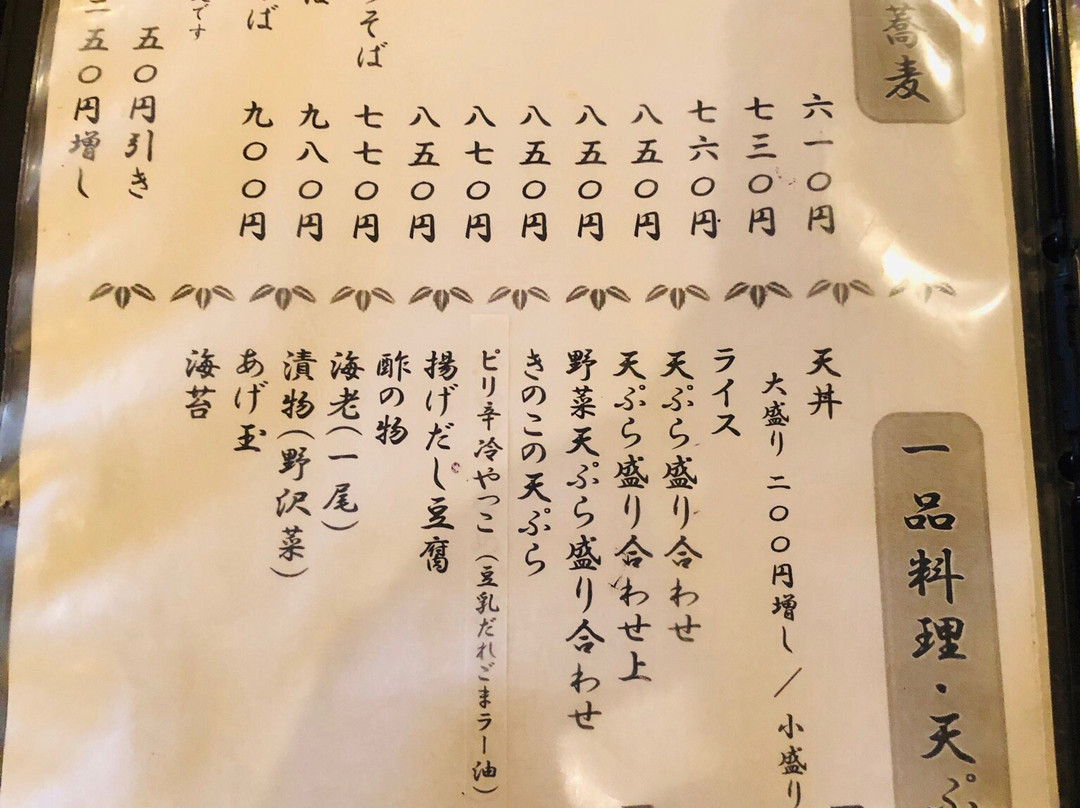 蕎麦
六一〇円
七三〇円
七六〇円
八五〇円
八五〇円
八五〇円
八七〇円
八五〇円
七七〇円
そば
九八〇円
ば
九〇〇円
そば
です
五〇円引き
二五〇円増し
一品料理・天ぷ
天丼
大盛り 二〇〇円増し / 小盛り
ライス
天ぷら盛り合わせ
天ぷら盛り合わせ上
野菜天ぷら盛り合わせ
きのこの天ぷら
ピリ辛冷やっこ（豆乳だれごまラー油）
揚げだし豆腐
酢の物
海老（一尾）
漬物（野沢菜）
あげ玉
海苔